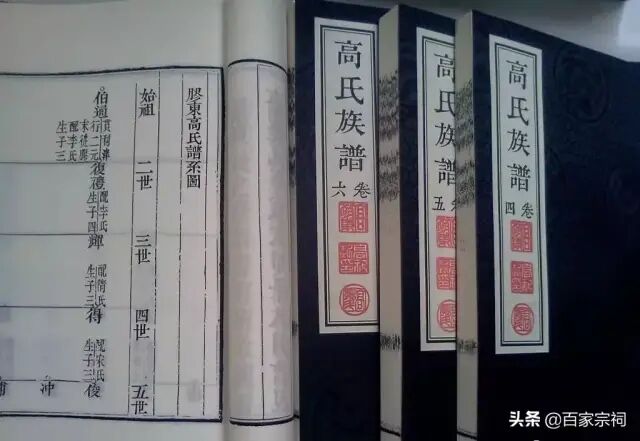 膠東高氏譜系圖
始祖 二世 三世 四世 五世
伯通
配李氏
生子三
配李氏
生子四
配隋氏
生子三
得
配宋氏
生子三
俊
沖
高氏族譜
卷六
高氏族譜
卷五
高氏族譜
卷四
头条 @百家宗祠